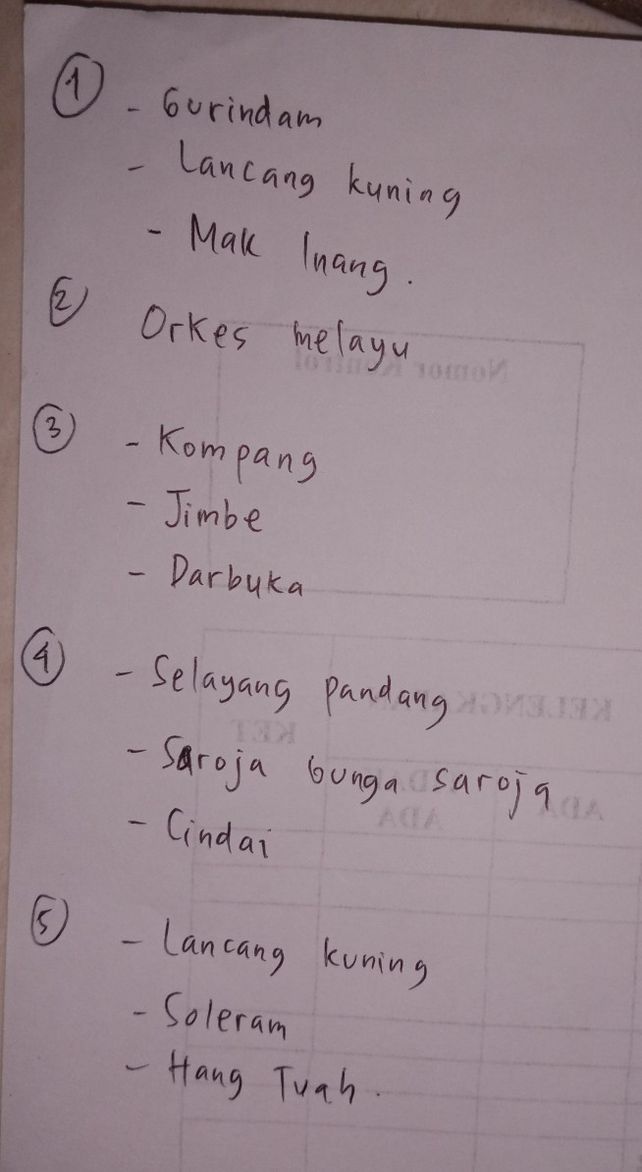 ① - Gurindam
- Lancang kuning
- Mak Inang.
② Orkes melayu
Nomor Kontrol
③ - Kompang
- Jimbe
- Darbuka
④ - Selayang pandang
KELENGK
KET
- Saroja bunga saroja
ADA
ADA
- Cindai
⑤ - Lancang kuning
- Soleram
- Hang Tuah.